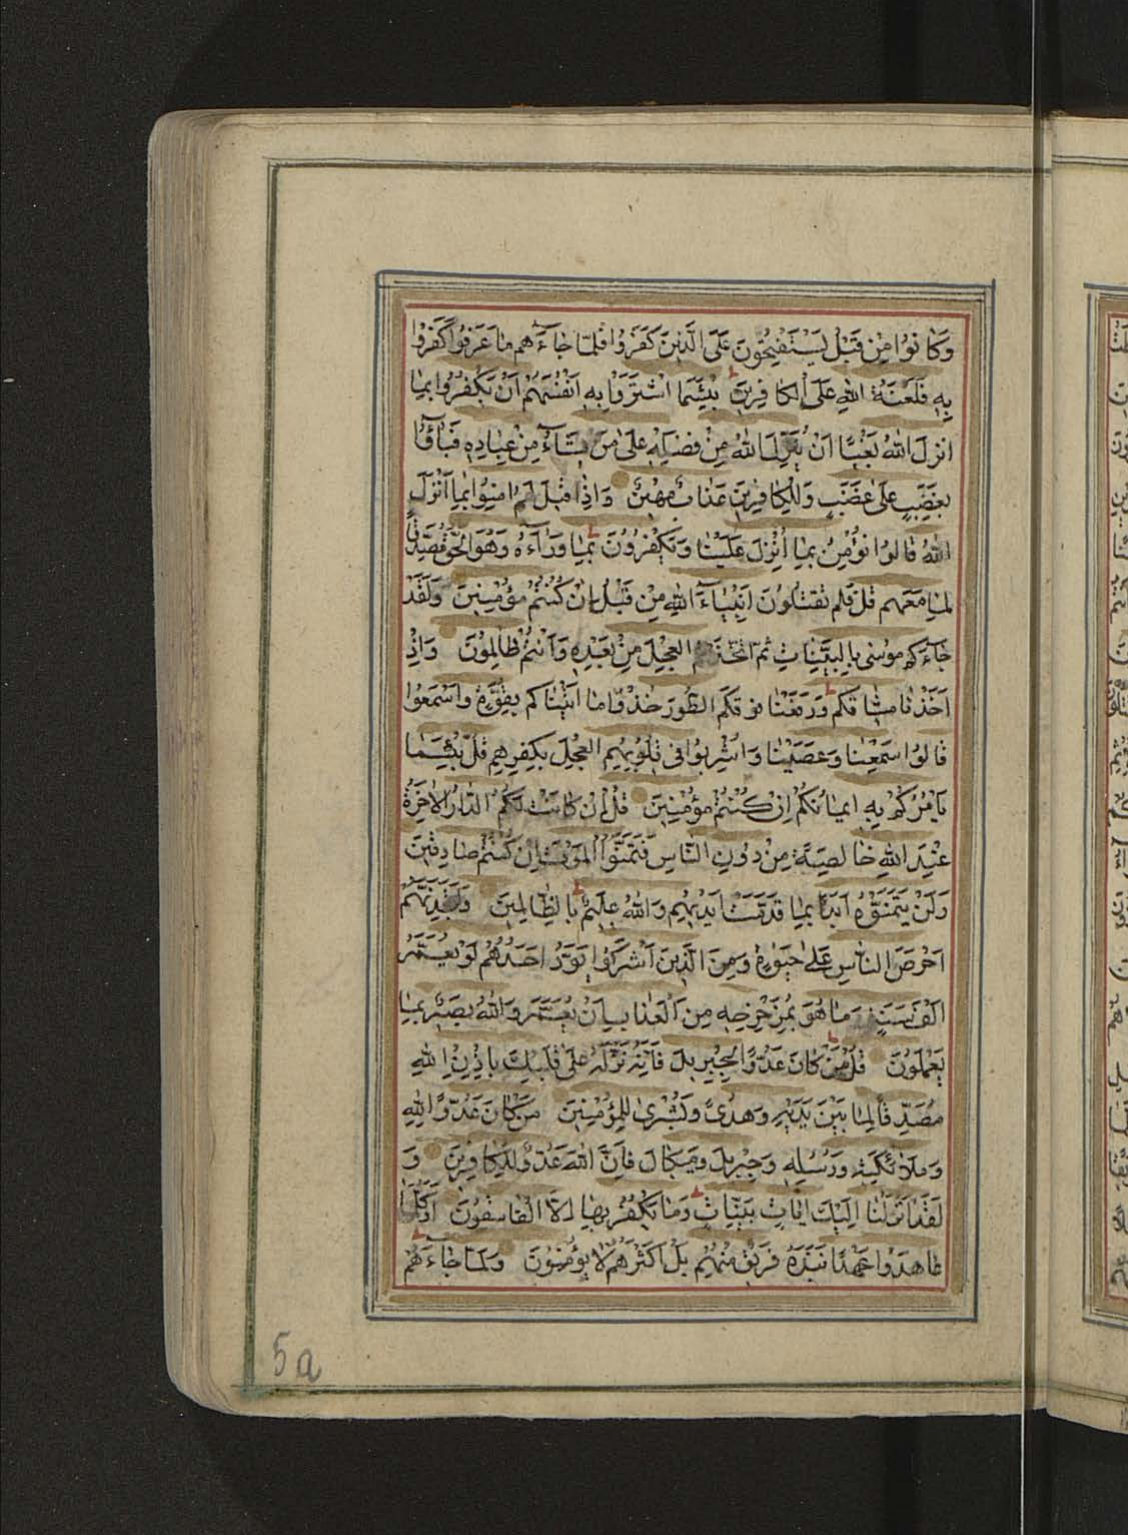 وَكَانُوا مِنْ قَبْلُ يَسْتَفْتِحُونَ عَلَى الَّذِينَ كَفَرُوا فَلَمَّا جَاءَهُمْ مَا عَرَفُوا كَفَرُوا
بِهِ فَلَعْنَةُ اللهِ عَلَى الْكَافِرِينَ بِئْسَمَا اشْتَرَوْا بِهِ أَنْفُسَهُمْ أَنْ يَكْفُرُوا بِمَا
أَنْزَلَ اللهُ بَغْيًا أَنْ يُنَزِّلَ اللهُ مِنْ فَضْلِهِ عَلَى مَنْ يَشَاءُ مِنْ عِبَادِهِ فَبَاؤُا
بِغَضَبٍ عَلَى غَضَبٍ وَلِلْكَافِرِينَ عَذَابٌ مُهِينٌ وَإِذَا قِيلَ لَهُمْ آمِنُوا بِمَا أَنْزَلَ
اللهُ قَالُوا نُؤْمِنُ بِمَا أُنْزِلَ عَلَيْنَا وَيَكْفُرُونَ بِمَا وَرَاءَهُ وَهُوَ الْحَقُّ مُصَدِّقًا
لِمَا مَعَهُمْ قُلْ فَلِمَ تَقْتُلُونَ أَنْبِيَاءَ اللهِ مِنْ قَبْلُ إِنْ كُنْتُمْ مُؤْمِنِينَ وَلَقَدْ
جَاءَكُمْ مُوسَى بِالْبَيِّنَاتِ ثُمَّ اتَّخَذْتُمُ الْعِجْلَ مِنْ بَعْدِهِ وَأَنْتُمْ ظَالِمُونَ وَإِذْ
أَخَذْنَا مِيثَاقَكُمْ وَرَفَعْنَا فَوْقَكُمُ الطُّورَ خُذُوا مَا آتَيْنَاكُمْ بِقُوَّةٍ وَاسْمَعُوا
قَالُوا سَمِعْنَا وَعَصَيْنَا وَأُشْرِبُوا فِي قُلُوبِهِمُ الْعِجْلَ بِكُفْرِهِمْ قُلْ بِئْسَمَا
يَأْمُرُكُمْ بِهِ إِيمَانُكُمْ إِنْ كُنْتُمْ مُؤْمِنِينَ قُلْ إِنْ كَانَتْ لَكُمُ الدَّارُ الْآخِرَةُ
عِنْدَ اللهِ خَالِصَةً مِنْ دُونِ النَّاسِ فَتَمَنَّوُا الْمَوْتَ إِنْ كُنْتُمْ صَادِقِينَ
وَلَنْ يَتَمَنَّوْهُ أَبَدًا بِمَا قَدَّمَتْ أَيْدِيهِمْ وَاللهُ عَلِيمٌ بِالظَّالِمِينَ وَلَتَجِدَنَّهُمْ
أَحْرَصَ النَّاسِ عَلَى حَيٰوةٍ وَمِنَ الَّذِينَ أَشْرَكُوا يَوَدُّ أَحَدُهُمْ لَوْ يُعَمَّرُ
أَلْفَ سَنَةٍ وَمَا هُوَ بِمُزَحْزِحِهِ مِنَ الْعَذَابِ أَنْ يُعَمَّرَ وَاللهُ بَصِيرٌ بِمَا
يَعْمَلُونَ قُلْ مَنْ كَانَ عَدُوًّا لِجِبْرِيلَ فَإِنَّهُ نَزَّلَهُ عَلَى قَلْبِكَ بِإِذْنِ اللهِ
مُصَدِّقًا لِمَا بَيْنَ يَدَيْهِ وَهُدًى وَبُشْرَى لِلْمُؤْمِنِينَ مَنْ كَانَ عَدُوًّا لِلهِ
وَمَلَائِكَتِهِ وَرُسُلِهِ وَجِبْرِيلَ وَمِيكَالَ فَإِنَّ اللهَ عَدُوٌّ لِلْكَافِرِينَ وَ
لَقَدْ أَنْزَلْنَا إِلَيْكَ آيَاتٍ بَيِّنَاتٍ وَمَا يَكْفُرُ بِهَا إِلَّا الْفَاسِقُونَ أَوَكُلَّمَا
عَاهَدُوا عَهْدًا نَبَذَهُ فَرِيقٌ مِنْهُمْ بَلْ أَكْثَرُهُمْ لَا يُؤْمِنُونَ وَلَمَّا جَاءَهُمْ
5a